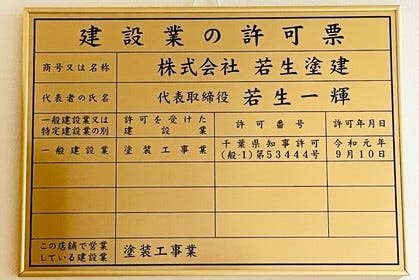 建設業の許可票
商号又は名称 株式会社 若生塗建
代表者の氏名 代表取締役 若生一輝
一般建設業又は 許可を受けた 許可番号 許可年月日
特定建設業の別 建設業
一般建設業 塗装工事業 千葉県知事許可 令和元年
(般-1)第53444号 9月10日
この店舗で営業 塗装工事業
している建設業